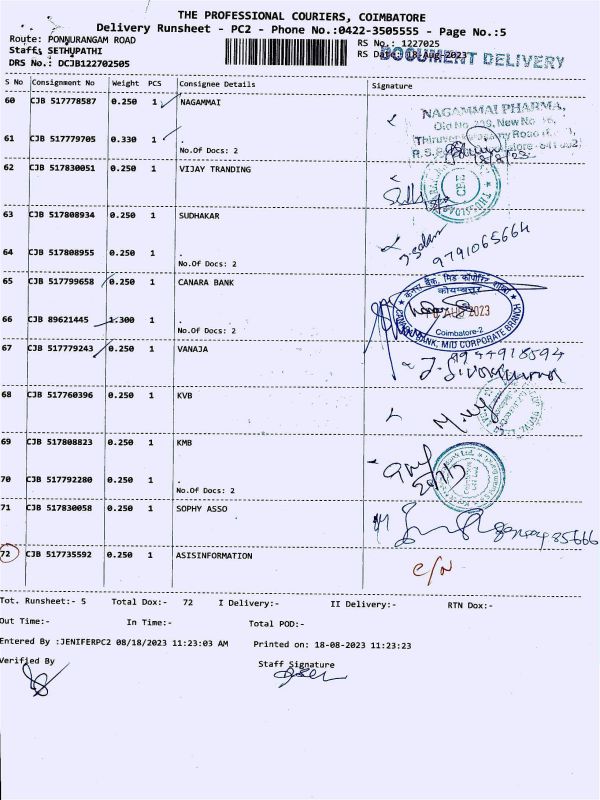 THE PROFESSIONAL COURIERS, COIMBATORE
Delivery Runsheet - PC2 - Phone No.:0422-3505555 - Page No.:5
Route: PONNURANGAM ROAD
RS No.: 1227025
Staff: SETHUPATHI
RS Date: 18-Aug-2023
DOCUMENT DELIVERY
DRS No.: DCJB122702505
S No Consignment No Weight PCS Consignee Details Signature
60 CJB 517778587 0.250 1 NAGAMMAI
NAGAMMAI PHARMA,
61 CJB 517779705 0.330 1 .
No.Of Docs: 2
62 CJB 517830051 0.250 1 VIJAY TRANDING
63 CJB 517808934 0.250 1 SUDHAKAR
9791065664
64 CJB 517808955 0.250 1 .
No.Of Docs: 2
65 CJB 517799658 0.250 1 CANARA BANK
कोयम्बत्तूर
2023
Coimbatore-2
CANARA BANK, MID CORPORATE BRANCH
66 CJB 89621445 1.300 1 .
No.Of Docs: 2
67 CJB 517779243 0.250 1 VANAJA
9944918594
68 CJB 517760396 0.250 1 KVB
69 CJB 517808823 0.250 1 KMB
70 CJB 517792280 0.250 1 .
No.Of Docs: 2
71 CJB 517830058 0.250 1 SOPHY ASSO
72 CJB 517735592 0.250 1 ASISINFORMATION
Tot. Runsheet:- 5 Total Dox:- 72 I Delivery:- II Delivery:- RTN Dox:-
Out Time:- In Time:- Total POD:-
Entered By :JENIFERPC2 08/18/2023 11:23:03 AM Printed on: 18-08-2023 11:23:23
Verified By Staff Signature